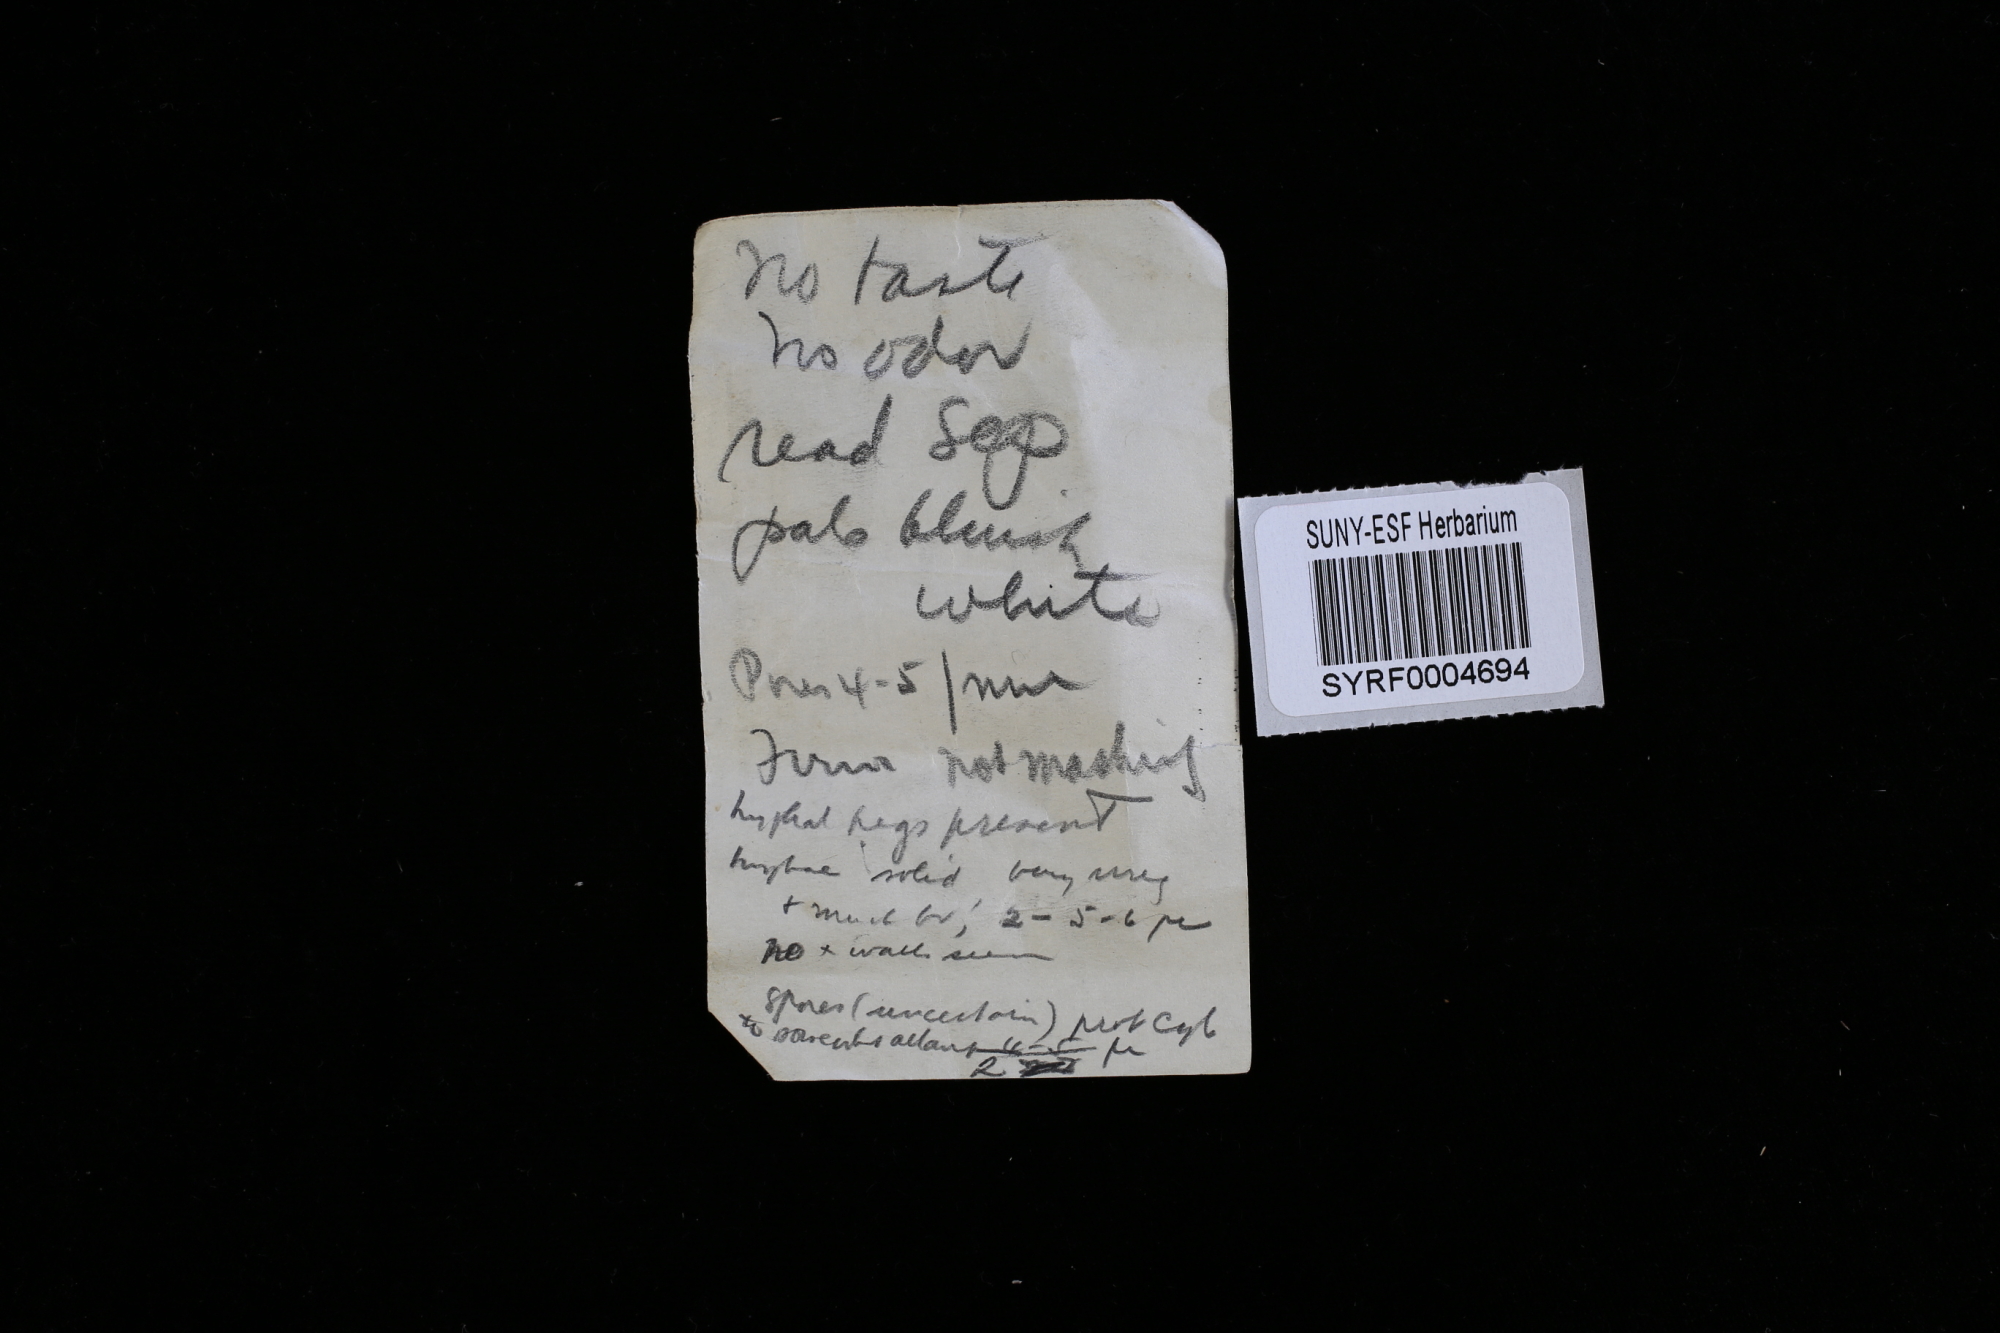 no taste
no odor
read Sap
pale bluish
white
Pores 4-5/mm
Firm not mashing
hyphal pegs present
hyphae solid very irreg
+ much br; 2-5-6 μ
no x walls seen
spores (uncertain) prob Cyl
to 4-5 μ
2
SUNY-ESF Herbarium
SYRF0004694